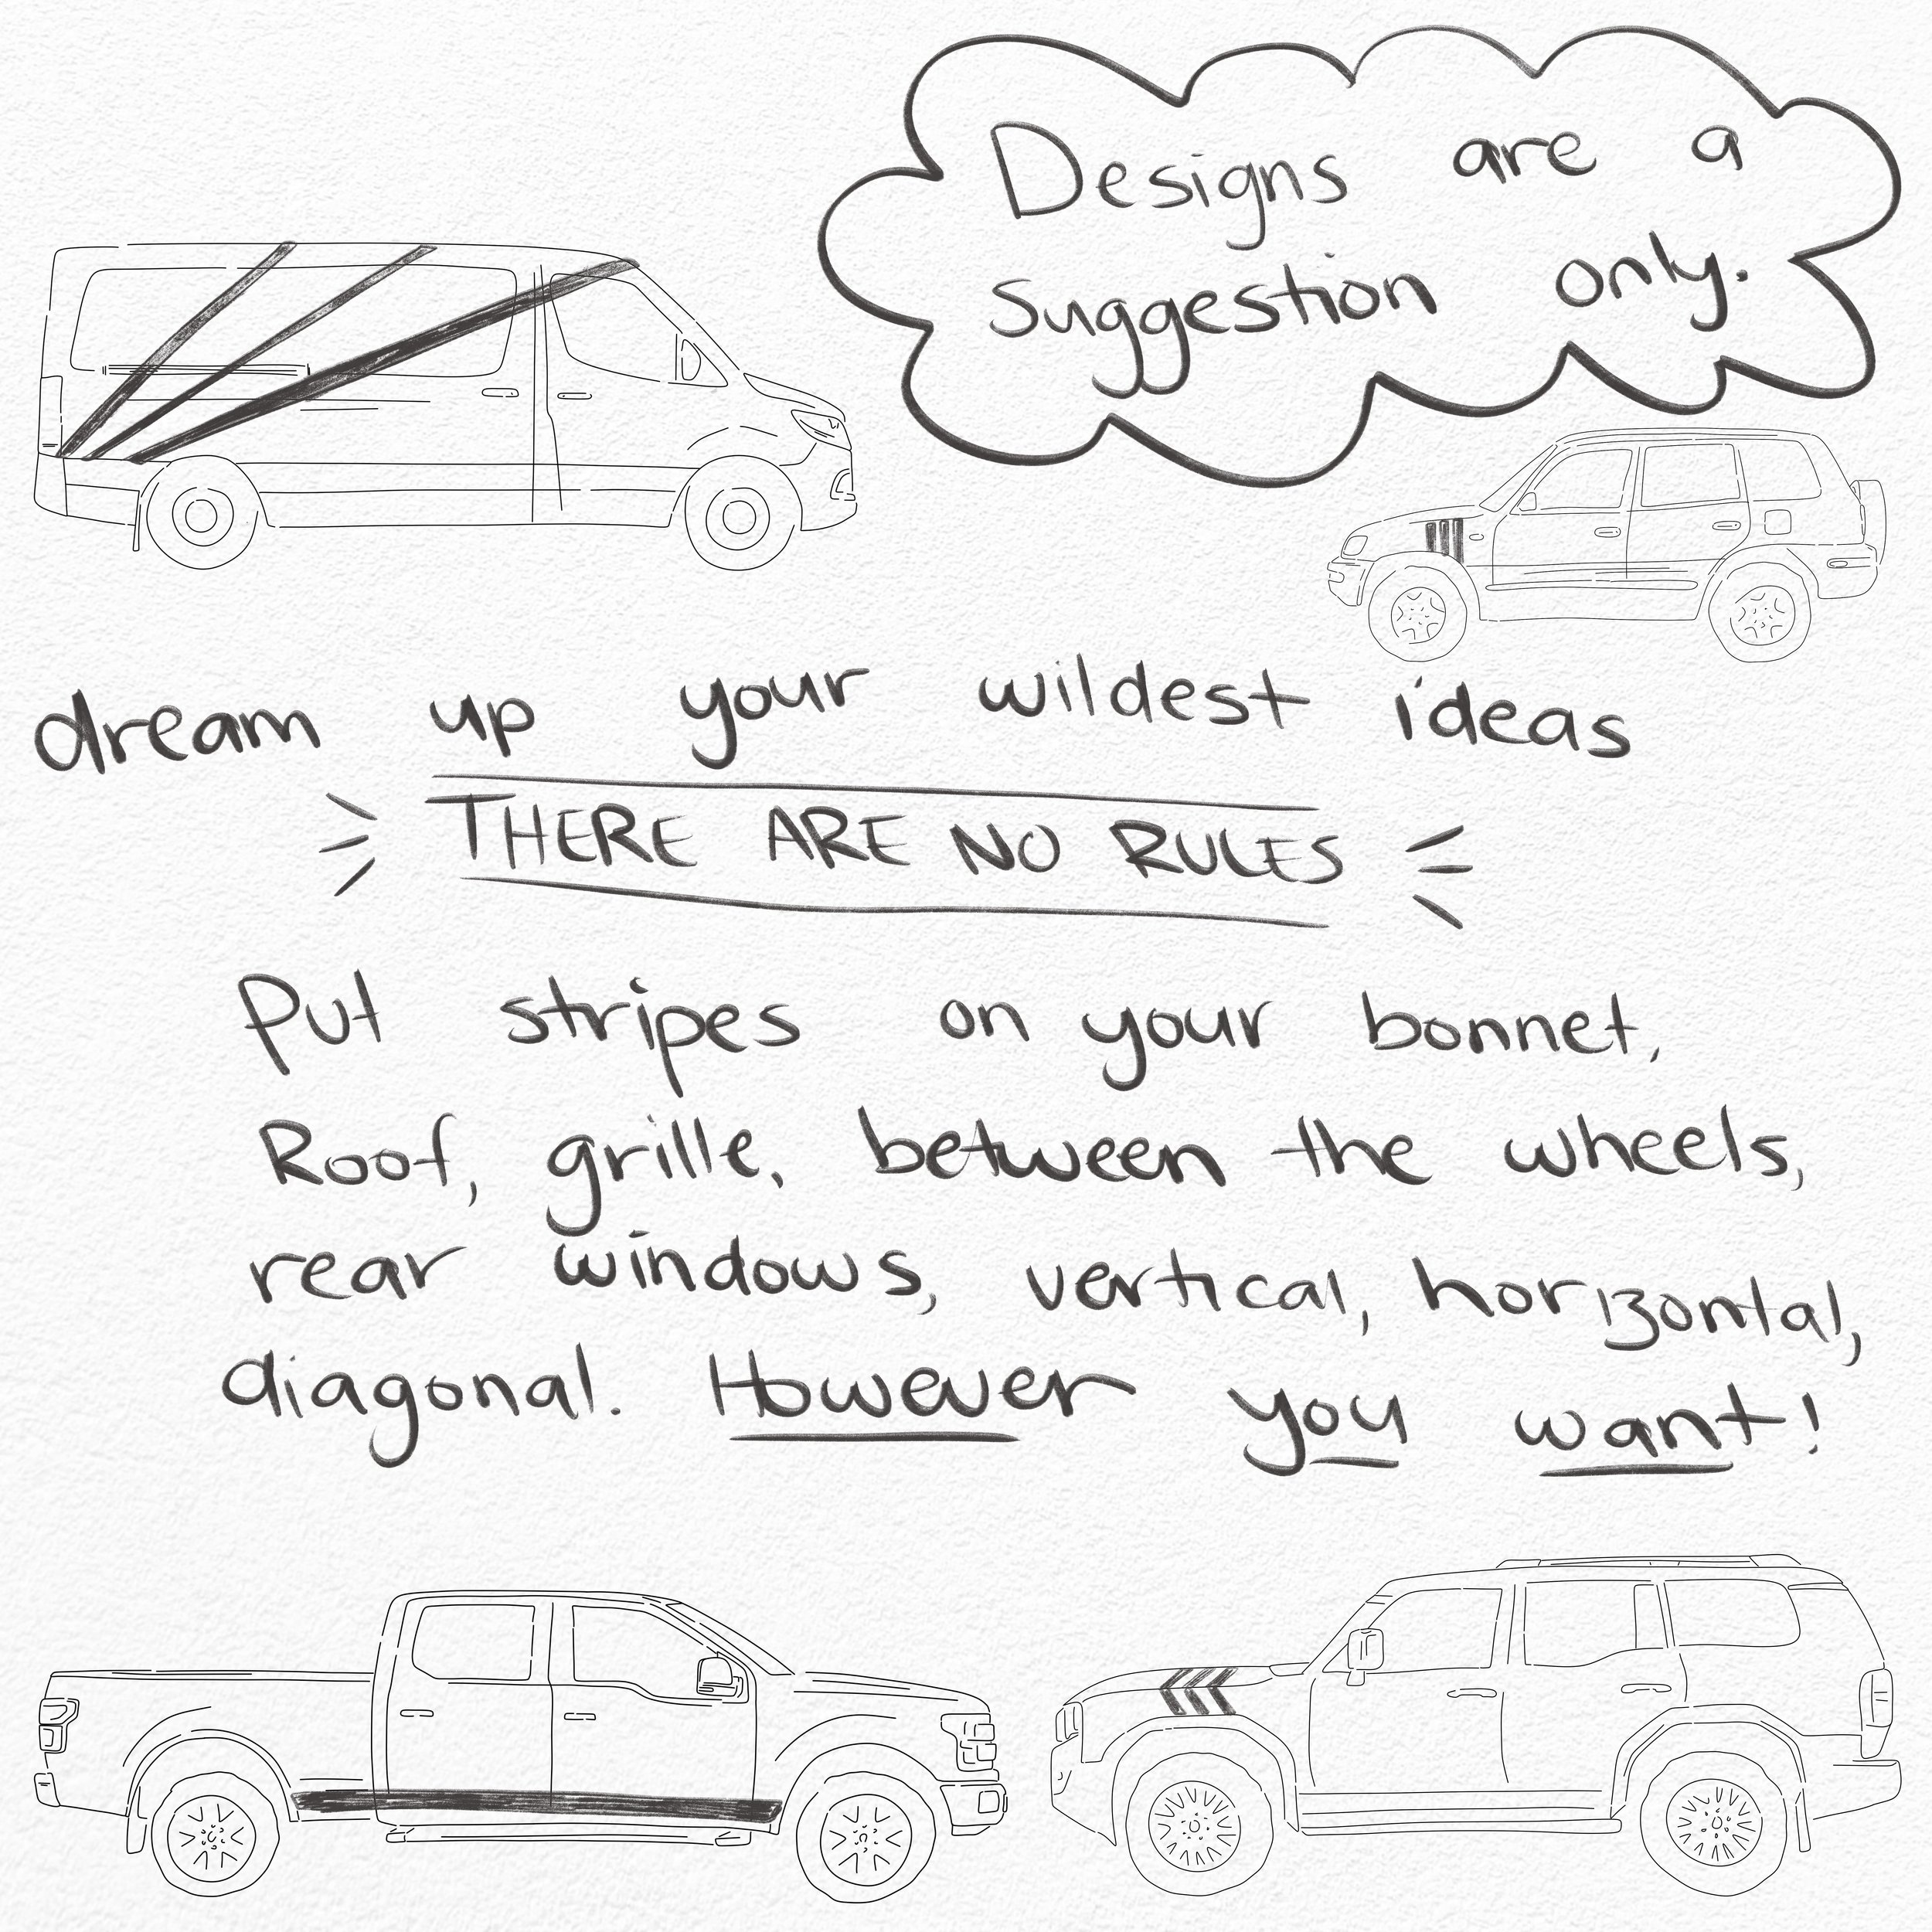 Designs are a
suggestion only.
dream up your wildest ideas
THERE ARE NO RULES
Put stripes on your bonnet,
Roof, grille, between the wheels,
rear windows, vertical, horizontal,
diagonal. However you want!